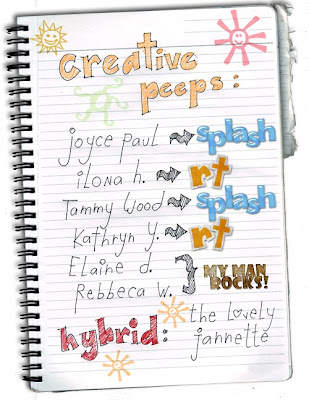 creative
peeps:
joyce Paul splash
ilona h. rt
Tammy Wood splash
Kathryn y. rt
Elaine d.
Rebbeca w. MY MAN
ROCKS!
hybrid: the lovely
jannette